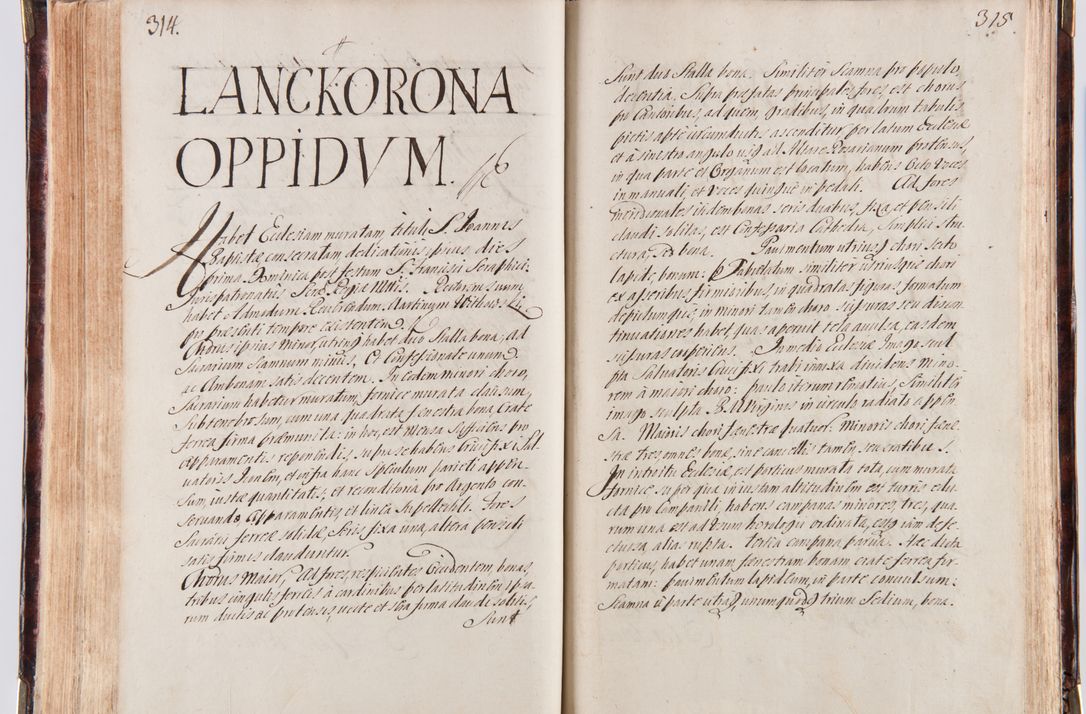 314.
LANCKORONA
OPPIDVM.
Habet Ecclesiam muratam, tituli S. Joannis
Baptistæ consecratam, dedicationis ipsius dies
prima Dominica post festum S. Francisci Seraphici:
Juris patronatus Seræ Regiæ Mttis. Rectorem suum
habet Admodum Reverendum Martinum
pro præsenti tempore existentem.
Chorus ipsius Minor, utrinq habet duo Stalla bona, ad
Sacrarium Scamnum minus, et Confessionale unum
ac Ambonam satis decentem. In eodem minori choro,
Sacrarium habetur muratum, fornice murata clausum,
subtenebrosum, cum una quadrata fenestra bona, Crate
ferrea firma præmunita: in hoc, est mensa sufficiens pro
apparamentis reponendis, supra se habens Crucifixi Sal-
uatoris Imaginem, et infra hanc Speculum parieti appen-
sum, iustæ quantitatis, et reconditoria pro Argento con-
seruando Apparamentis, et linea supellectili. Fores
Sacrarii ferreæ solidæ, Seris fixa una, altera pensili
satis firmis clauduntur.
Chorus Maior, Ad fores, respicientes Occidentem, bonas,
tribus cingulis ferreis à cardinibus per latitudinem ipsa-
rum ductis ac protensis, uecte et sera firma claudi solitas,
Sunt
315.
Sunt duo Stalla bona. Similiter Scamna pro populo,
decentia. Supra præfatas principales fores, est chorus
pro Cantoribus, ad quem, gradibus, in quadrum tabulis
pictis apte circumductis ascenditur per latum Ecclesiæ
et à sinistro angulo usq ad Altare Rosarianum protensus,
in qua parte et Organum est locatum, habens Octo voces
in manuali, et voces quinque in pedali. Ad fores
meridionales itidem bonas seris duabus, fixa, et pensili
claudi solitas, est Confessaria Cathedra, simplici stru-
ctura, sed bona. Pauimentum utriusq chori secto
lapide, bonum: Tabulatum similiter utriusque chori
ex asseribus firmioribus, in quadratas figuras formatum
depictumque, in minori tamen choro scissuras seu discon-
tinuationes habet, quas aperuit tela auulsa, easdem
scissuras cooperiens. In medio Ecclesiæ Imago scul-
pta Saluatoris Crucifixi trabi innixa diuidens mino-
rem à maiori choro: paulo iterum remotius, similiter
imago sculpta B. M Virginis in circulo radiato appen-
sa. Maioris chori fenestræ quatuor: Minoris chori fene-
stræ tres omnes bonæ, sine cancellis tamen, seu cratibus.
In introitu Ecclesiæ, est porticus murata tota, cum murata
fornice super qua in iustam altitudinem est, turris edu-
cta pro Campanili, habens campanas minores, tres, qua-
rum una est ad usum horologii ordinata, estq iam defe-
ctuosa, alias rupta. tertia campana parua. Hæc dicta
porticus, habet unam fenestram bonam crate ferrea fir-
matam: pauimentum lapideum, in parte conuulsum:
Scamna à parte utraq, unumquodq trium Sedium, bona.